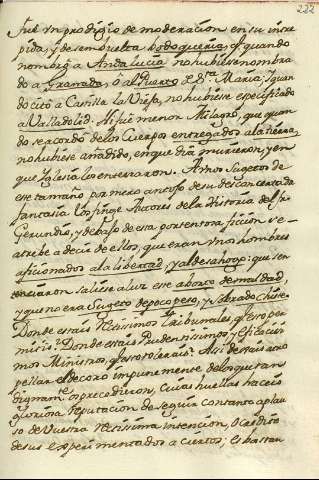 222
Fué un prodigio de moderacion en su intre
pida, y desembuelta bodoqueria, qe. quando
nombrò a Andalucia no hubiese nombra
do a Granada, ò al Puerto de Sta. Maria; i quan
do citò a Castilla la Vieja, no hubiese especificado
a Valladolid. Ni fue menor Milagro, que quan
do se acordò de los Cuerpos entregados a la tierra,
no hubiese añadido, en que dia murieron, y en
que Iglesia los enterraron. A unos Sugetos de
este tamaño por mero antojo de su desconcertada
fantasia los finge Autores de la Historia del Fr.
Gerundio, y debajo de esta portentosa ficcion se
atrebe a decir de ellos, que eran unos hombres
aficionados a la libertad, y al desahogo: que sen
tenciaron saliese a luz este aborto de maldad,
y que no era Sugeto de poco peso, y sobrado chiste.
Donde estais rectisimos Tribunales, qe. eso per
mitis? Donde estais Prudentisimos y Eficacisi
mos Ministros, qe. eso tolerais? Asi dejais atro
pellar el decoro impunemente de los que tan
dignamte. os precedieron, cuias huellas haceis
gloriosa reputacion de seguir con tanto aplau
so de Vuestra rectisima intencion, ò Credito
de sus experimentados aciertos; es bastan